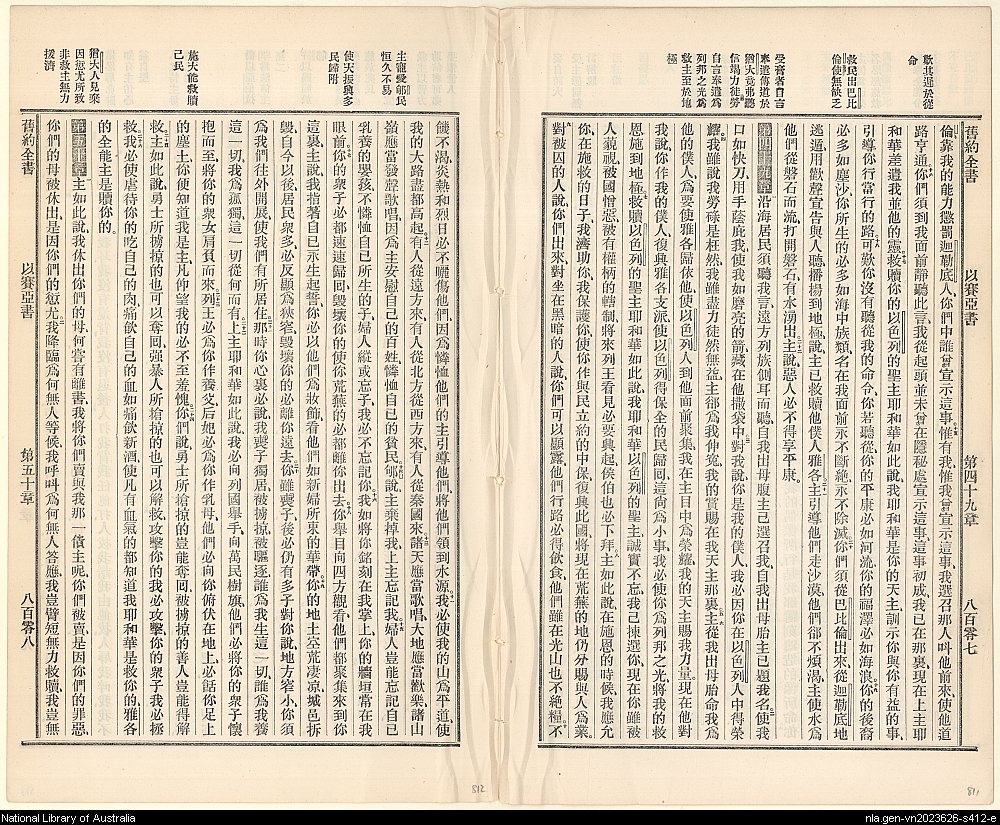 敢其逞於從
命
救民出巴比
倫使無缺乏
受膏者自言
奉遣傳道於
猶大竟弗聽
信竭力徒勞
自言奉遣爲
列邦之光爲
救主至於地
極
舊約全書
以賽亞書
第四十九章
八百零七
倫靠我的能力懲罰迦勒底人你們中誰曾宣示這事惟有我惟我曾宣示這事我選召那人叫他前來使他道
路亨通你們須到我面前靜聽此言我從起頭並未曾在隱秘處宣示這事這事初成我已在那裏現在上主耶
和華差遣我並他的靈救贖你的以色列的聖主耶和華如此說我耶和華是你的天主訓示你與你有益的事
引導你行當行的路可歎你沒有聽從我的命令你若聽從你的平康必如河流你的福澤必如海浪你的後裔
必多如塵沙你所生的必多如海中族類名在我面前永不斷絶永不除滅你們須從巴比倫出來從迦勒底地
逃遁用歡聲宣告與人聽播揚到地極說主已救贖他僕人雅各主引導他們走沙漠他們都不煩渴主使水爲
他們從磐石而流打開磐石有水湧出主說惡人必不得享平康
第四十九章沿海居民須聽我言遠方列族側耳而聽自我出母腹主已選召我自我出母胎主已題我名使我
口如快刀用手蔭庇我使我如磨亮的箭藏在他撒袋中對我說你是我的僕人我必因你在以色列人中得榮
耀我雖說我勞碌是枉然我雖盡力徒然無益主卻爲我伸寃我的賞賜在我天主那裏主從我出母胎命我爲
他的僕人爲要使雅各歸依他使以色列人到他面前聚集我在主目中爲榮耀我的天主賜我力量現在他對
我說你作我的僕人復興雅各支派使以色列得保全的民歸囘這尚爲小事我必使你爲列邦之光將我的救
恩施到地極救贖以色列的聖主耶和華如此說我耶和華以色列的聖主誠實不忘我已揀選你現在你雖被
人藐視被國憎惡被有權柄的轄制將來列王看見必要興起侯伯也必下拜主如此說在施恩的時候我應允
你在施救的日子我濟助你我保護你使你作與民立約的中保復興此國將現在荒蕪的地仍分賜與人爲業
對被囚的人說你們出來對坐在黑暗的人說你們可以顯露他們行路必得飲食他們雖在光山也不絶糧不
主寵愛郇民
恒久不易
使大振興多
民歸附
施大能救贖
己民
猶大人見棄
因愆尤所致
非救主無力
援濟
饑不渴炎熱和烈日必不曬傷他們因爲憐恤他們的主引導他們將他們領到水源我必使我的山爲平道使
我的大路盡都高起有人從遠方來有人從北方從西方來有人從秦國來諸天應當歌唱大地應當歡樂諸山
嶺應當發聲歌唱因爲主安慰自己的百姓憐恤自己的貧民郇說主棄掉我上主忘記我婦人豈能忘記自己
乳養的嬰孩不憐恤自己所生的子婦人縱或忘了我必不忘記你我如將你銘刻在我掌上你的牆垣常在我
眼前你的衆子必都速速歸囘毀壞你的使你荒蕪的必都離你出去你舉目向四方觀看他們都聚集來到你
這裏主說我指著自已永生起誓你必以他們爲妝飾看他們如新婦所束的華帶你的地土至荒凄凉城邑拆
毀自今以後居民衆多必反顯爲狹窄毀壞你的必離你遠去你雖喪子後必仍有多子對你說地方窄小你須
爲我們往外開展使我們有所居住那時你心裏必說我喪子獨居被擄掠被驅逐誰爲我生這一切誰爲我養
這一切我爲孤獨這一切從何而有上主耶和華如此說我必向列國舉手向萬民樹旗他們必將你的衆子懷
抱而至將你的衆女肩負而來列王必爲你作養父后妃必爲你作乳母他們必向你俯伏在地上必餂你足上
的塵土你便知道我是主凡仰望我的必不至羞愧你們說勇士所搶掠的豈能奪囘被擄掠的善人豈能得解
救主如此說勇士所擄掠的也可以奪囘强暴人所搶掠的也可以解救攻擊你的我必攻擊你的衆子我必極
救我必使虐待你的吃自己的肉痛飲自己的血如痛飲新酒使凡有血氣的都知道我耶和華是救你的雅各
的全能主是贖你的
第五十章主如此說我休出你們的母何嘗有離書我將你們賣與我那一債主呢你們被賣是因你們的罪惡
你們的母被休出是因你們的愆尤我降臨爲何無人等候我呼叫爲何無人答應我豈臂短無力救贖我豈無
舊約全書
以賽亞書
第五十章
八百零八
812
811
National Library of Australia
nla.gen-vn2023626-s412-e